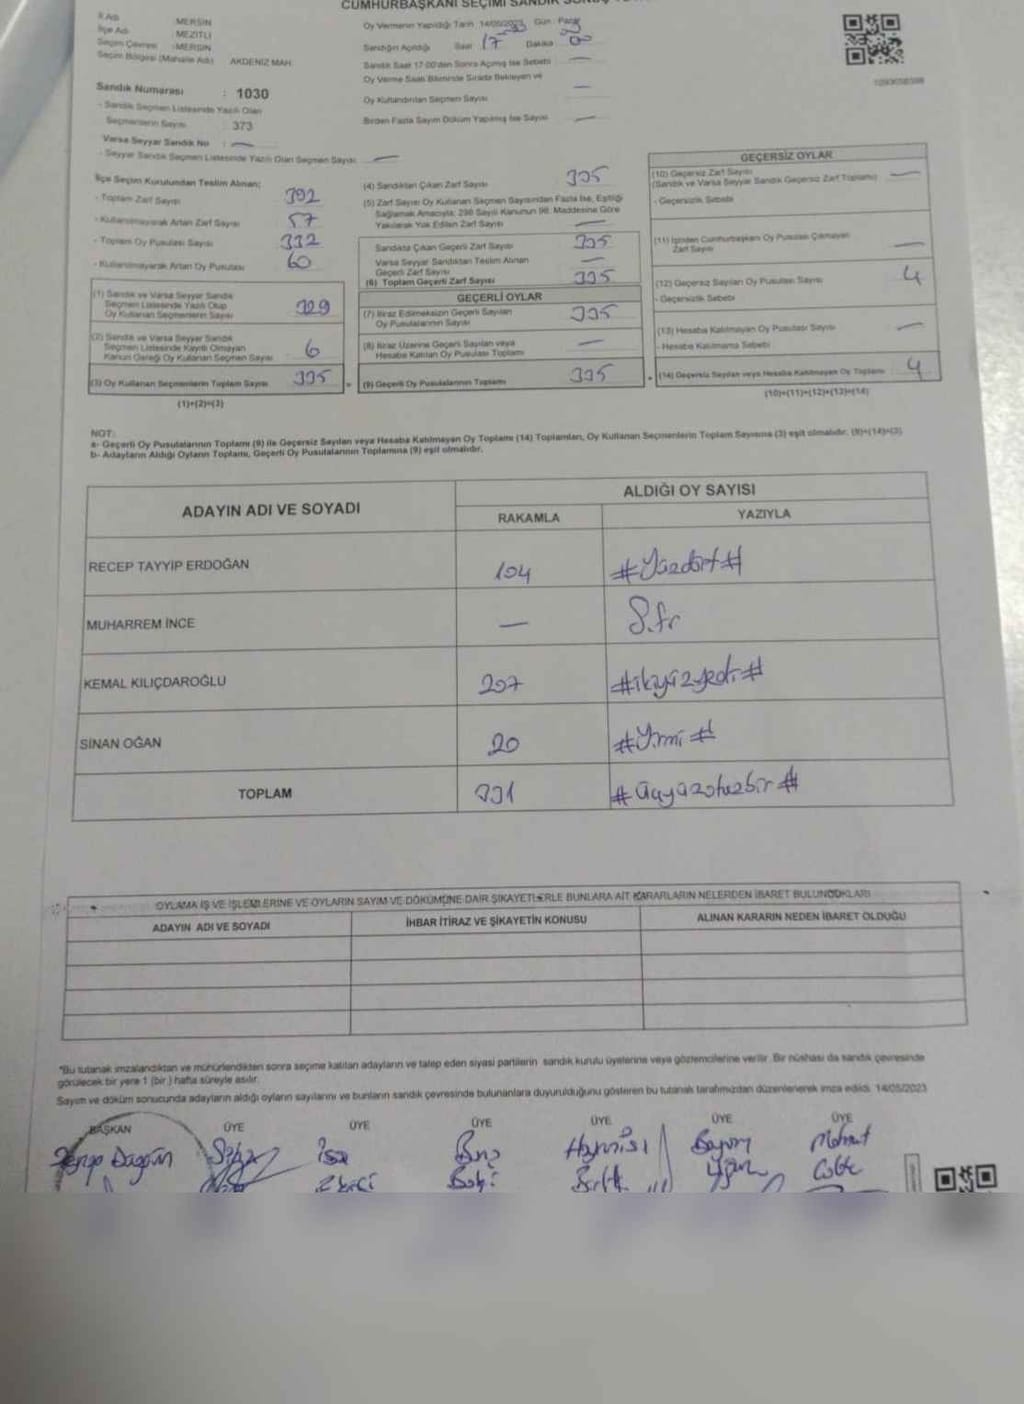 CUMHURBAŞKANI SEÇİMİ SANDIK
İl Adı : MERSİN
İlçe Adı : MEZİTLİ
Seçim Çevresi : MERSİN
Seçim Bölgesi (Mahalle Adı) AKDENİZ MAH.
Sandık Numarası : 1030
- Sandık Seçmen Listesinde Yazılı Olan
Seçmenlerin Sayısı : 373
Varsa Seyyar Sandık No : —
- Seyyar Sandık Seçmen Listesinde Yazılı Olan Seçmen Sayısı —
Oy Vermenin Yapıldığı Tarih 14/05/2023 Gün : Pazar
Sandığın Açıldığı Saat 17 Dakika 00
Sandık Saat 17:00'den Sonra Açılmış İse Sebebi —
Oy Verme Saati Bitiminde Sırada Bekleyen ve
Oy Kullandırılan Seçmen Sayısı —
Birden Fazla Sayım Döküm Yapılmış İse Sayısı —
İlçe Seçim Kurulundan Teslim Alınan;
- Toplam Zarf Sayısı 392
- Kullanılmayarak Artan Zarf Sayısı 57
- Toplam Oy Pusulası Sayısı
- Kullanılmayarak Artan Oy Pusulası 60
(1) Sandık ve Varsa Seyyar Sandık
Seçmen Listesinde Yazılı Olup
Oy Kullanan Seçmenlerin Sayısı 329
(2) Sandık ve Varsa Seyyar Sandık
Seçmen Listesinde Kayıtlı Olmayan
Kanun Gereği Oy Kullanan Seçmen Sayısı 6
(3) Oy Kullanan Seçmenlerin Toplam Sayısı 335
(1)+(2)=(3)
(4) Sandıktan Çıkan Zarf Sayısı 335
(5) Zarf Sayısı Oy Kullanan Seçmen Sayısından Fazla İse, Eşitliği
Sağlamak Amacıyla; 298 Sayılı Kanunun 98. Maddesine Göre
Yakılarak Yok Edilen Zarf Sayısı —
Sandıkta Çıkan Geçerli Zarf Sayısı 335
Varsa Seyyar Sandıktan Teslim Alınan
Geçerli Zarf Sayısı —
(6) Toplam Geçerli Zarf Sayısı 335
GEÇERLİ OYLAR
(7) İtiraz Edilmeksizin Geçerli Sayılan
Oy Pusulalarının Sayısı 335
(8) İtiraz Üzerine Geçerli Sayılan veya
Hesaba Katılan Oy Pusulası Toplamı —
(9) Geçerli Oy Pusulalarının Toplamı 335
GEÇERSİZ OYLAR
(10) Geçersiz Zarf Sayısı
(Sandık ve Varsa Seyyar Sandık Geçersiz Zarf Toplamı) —
- Geçersizlik Sebebi
(11) İçinden Cumhurbaşkanı Oy Pusulası Çıkmayan
Zarf Sayısı —
(12) Geçersiz Sayılan Oy Pusulası Sayısı 4
- Geçersizlik Sebebi
(13) Hesaba Katılmayan Oy Pusulası Sayısı —
- Hesaba Katılmama Sebebi
(14) Geçersiz Sayılan veya Hesaba Katılmayan Oy Toplamı 4
(10)+(11)+(12)+(13)=(14)
NOT:
a- Geçerli Oy Pusulalarının Toplamı (9) ile Geçersiz Sayılan veya Hesaba Katılmayan Oy Toplamı (14) Toplamları, Oy Kullanan Seçmenlerin Toplam Sayısına (3) eşit olmalıdır. (9)+(14)=(3)
b- Adayların Aldığı Oyların Toplamı, Geçerli Oy Pusulalarının Toplamına (9) eşit olmalıdır.
ADAYIN ADI VE SOYADI
ALDIĞI OY SAYISI
RAKAMLA YAZIYLA
RECEP TAYYİP ERDOĞAN 104 #Yüzdört#
MUHARREM İNCE — Sıfır
KEMAL KILIÇDAROĞLU 207 #ikiyüzyedi#
SİNAN OĞAN 20 #Yirmi#
TOPLAM 331 #üçyüzotuzbir#
OYLAMA İŞ VE İŞLEMLERİNE VE OYLARIN SAYIM VE DÖKÜMÜNE DAİR ŞİKAYETLERLE BUNLARA AİT KARARLARIN NELERDEN İBARET BULUNDUKLARI
ADAYIN ADI VE SOYADI İHBAR İTİRAZ VE ŞİKAYETİN KONUSU ALINAN KARARIN NEDEN İBARET OLDUĞU
*Bu tutanak imzalandıktan ve mühürlendikten sonra seçime katılan adayların ve talep eden siyasi partilerin sandık kurulu üyelerine veya gözlemcilerine verilir. Bir nüshası da sandık çevresinde
görülecek bir yere 1 (bir) hafta süreyle asılır.
Sayım ve döküm sonucunda adayların aldığı oyların sayılarını ve bunların sandık çevresinde bulunanlara duyurulduğunu gösteren bu tutanak tarafımızdan düzenlenerek imza edildi. 14/05/2023
BAŞKAN ÜYE ÜYE ÜYE ÜYE ÜYE ÜYE